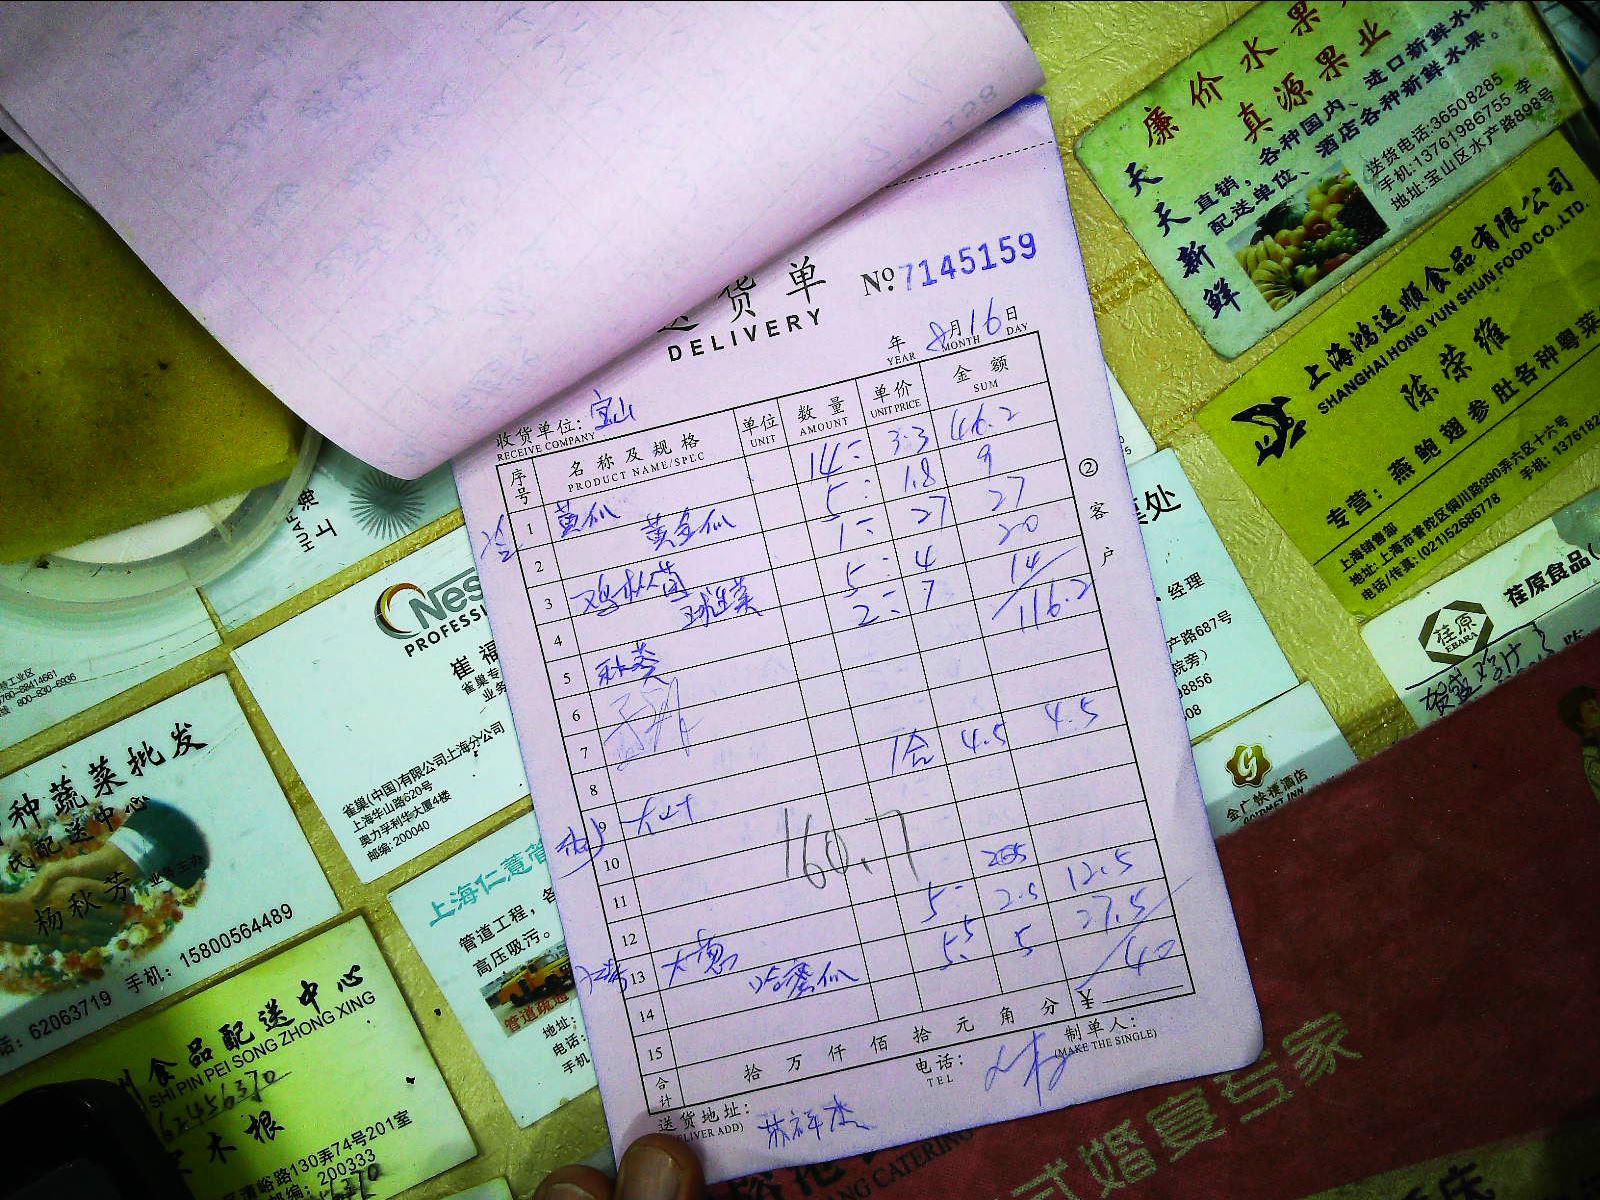 送货单
DELIVERY
No. 7145159
年 8月16日
YEAR MONTH DAY
收货单位: 宝山
RECEIVE COMPANY
序号 名称及规格 单位 数量 单价 金额
PRODUCT NAME/SPEC UNIT AMOUNT UNIT PRICE SUM
1 黄瓜 14- 3.3 46.2
2 黄金瓜 5- 1.8 9
3 鸡枞菌 1- 27 27
4 5- 4 20
5 秋葵 2- 7 14
6 116.2
7
8 1盒 4.5 4.5
9
10
160.7
11
12
13 大葱 5- 2.5 12.5
14 哈蜜瓜 5.5 5 27.5
15 40
合计 拾万仟佰拾元角分 ¥
送货地址:
(DELIVER ADD)
电话:
TEL
制单人:
(MAKE THE SINGLE)
②客户
廉价水果
真源果业
天天新鲜
直销,各种国内、进口新鲜水果
配送单位、酒店各种新鲜水果。
送货电话:36508285
手机:13761986755 李
地址:宝山区水产路898号
上海鸿运顺食品有限公司
SHANGHAI HONG YUN SHUN FOOD CO.,LTD.
陈荣雄
专营:燕鲍翅参肚各种粤菜
上海销售部
地址:上海市普陀区铜川路990弄六区十六号
电话/传真:(021)52686778 手机:1376182
荏原食品(
荏原
EBARA
票处
经理
产路687号
院旁)
98856
508
金广快捷酒店
HUAF
上
Nes
PROFESSI
崔福
雀巢专
业务
雀巢(中国)有限公司上海分公司
上海华山路620号
奥力孚利华大厦4楼
邮编:200040
特工业区
0760-88414661
线 800-830-6936
种蔬菜批发
民配送中心
杨秋芳
手机:15800564489
话:62063719
上海仁薏管
管道工程,各
高压吸污。
管道疏通
地址:
电话:
手机
食品配送中心
SHI PIN PEI SONG ZHONG XING
62456370
木根
峪路130弄74号201室
邮编:200333
式婚宴专家
CATERING